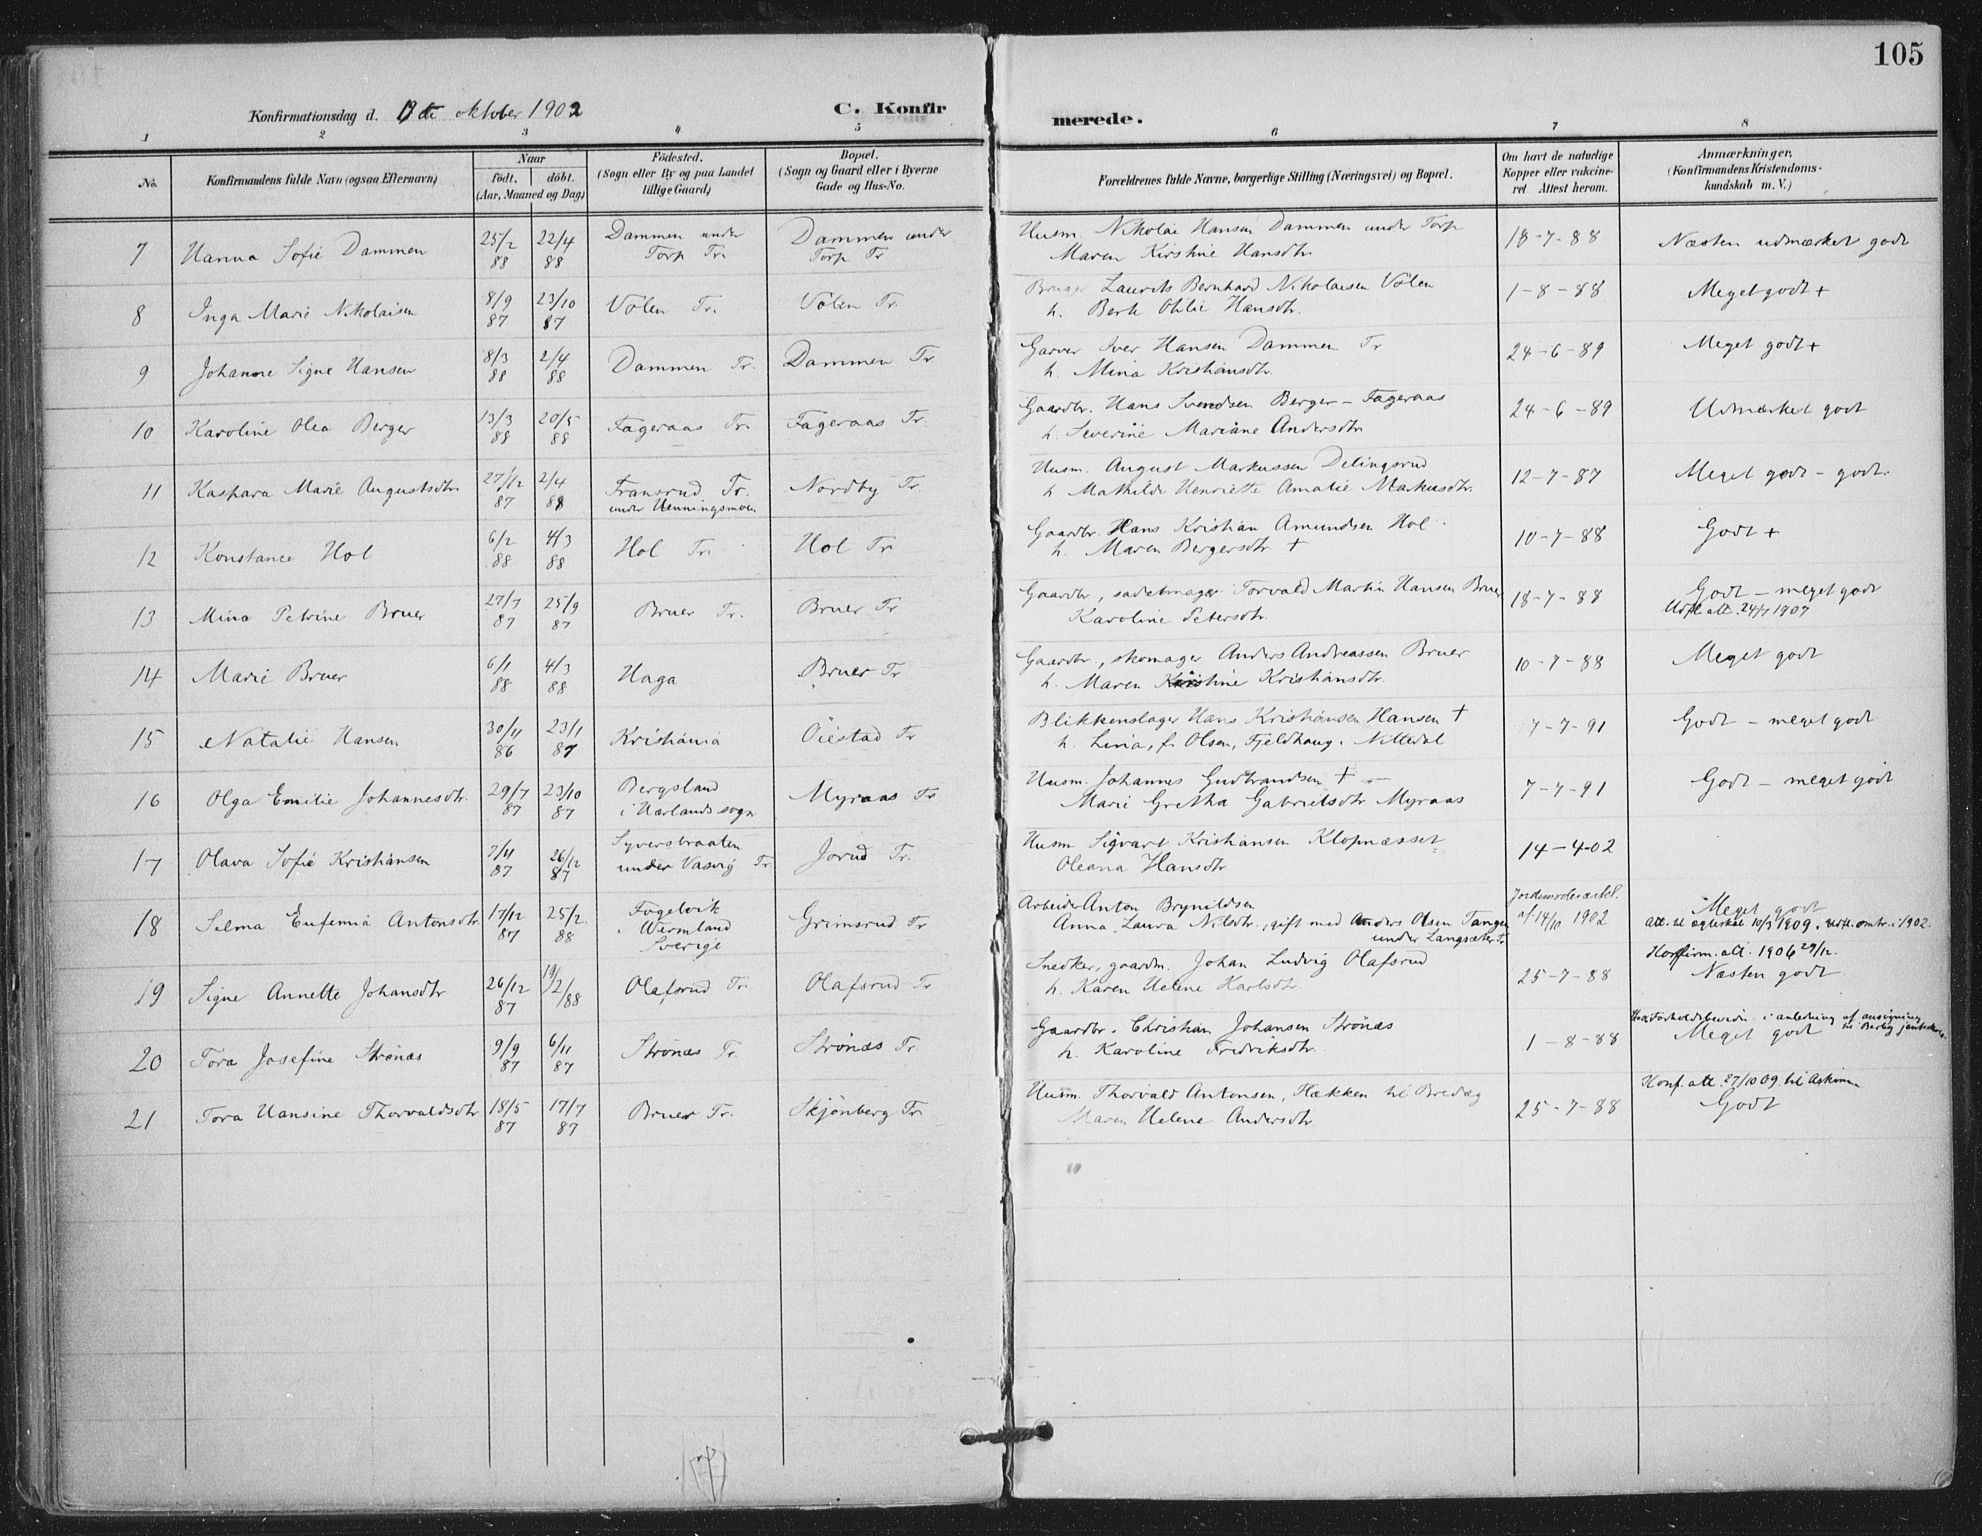 105
Konfirmationsdag d. 13de oktober 1902
C. Konfirmerede.
1 2 3 4 5 6 7 8
No. Konfirmandens fulde Navn (ogsaa Efternavn) Naar født. døbt. (Aar, Maaned og Dag) Fødested. (Sogn eller By og paa Landet tillige Gaard) Bopæl. (Sogn og Gaard eller i Byerne Gade og Hus-No. Forældrenes fulde Navne, borgerlige Stilling (Næringsvei) og Bopæl. Om havt de naturlige Kopper eller vakcineret Attest herom. Anmærkninger. (Konfirmandens Kristendomskundskab m. V.)
7 Hanna Sofie Dammen 25/2 88 22/4 88 Dammen under Torp Tr. Dammen under Torp Tr. Husm. Nikolai Hansen Dammen under Torp
Maren Kirstine Hansdtr. 18-7-88 Næsten udmærket godt
8 Inga Marie Nikolaisen 8/9 87 23/10 87 Volen Tr. Volen Tr. Bruger Laurits Bernhard Nikolaisen Volen
h. Berte Otilie Hansdtr. 1-8-88 Meget godt +
9 Johanne Signe Hansen 8/3 88 2/4 88 Dammen Tr. Dammen Tr. Garver Iver Hansen Dammen Tr
h. Mina Kristiansdtr. 24-6-89 Meget godt +
10 Karoline Olea Berger 13/3 88 20/5 88 Fageraas Tr. Fageraas Tr. Gaardbr. Hans Svendsen Berger - Fageraas
h. Severine Mariane Andersdtr 24-6-89 Udmærket godt
11 Kaspara Marie Augustsdtr 27/12 87 2/4 88 Fransrud Tr. under Henningsmoen Nordby Tr. Husm. August Markussen Delingsrud
h. Mathilde Henriette Amalie Markusdtr. 12-7-87 Meget godt - godt.
12 Konstance Hol 6/2 88 4/3 88 Hol Tr. Hol Tr. Gaardbr Hans Kristian Amundsen Hol.
h. Maren Bergersdtr + 10-7-88 Godt +
13 Mina Petrine Bruer 27/7 87 25/9 87 Bruer Tr. Bruer Tr Gaardbr, sadelmager Torvald Martin Hansen Bruer
Karoline Petersdtr. 18-7-88 Godt - meget godt
Udst. att. 24/7 1907
14 Marie Bruer 6/1 88 4/3 88 Haga Bruer Tr Gaardbr., skomager Anders Andreassen Bruer
h. Maren Kristine Kristiansdtr. 10-7-88 Meget godt
15 Natalie Hansen 30/11 86 23/1 87 Kristiania Öiestad Tr Blikkenslager Hans Kristiansen Hansen +
h. Lina, f. Olsen, Fjeldhaug, Nittedal 7-7-91 Godt - meget godt
16 Olga Emilie Johannesdtr. 29/7 87 23/10 87 Bergsland i Hærlands sogn Myraas Tr Husm. Johannes Gudbrandsen + -
Marie Gretha Gabrielsdtr Myraas 7-7-91 Godt - meget godt
17 Olava Sofie Kristiansen 7/11 87 26/12 87 Syversbraaten under Vasvig Tr. Jorud Tr. Husm Sigvart Kristiansen Klopnæsset
Oleana Hansdtr 14-4-02
18 Selma Eufemia Antonsdtr 17/12 87 25/2 88 Fogelvik i Wermland Sverige Grimsrud Tr Arbeider Anton Brynildsen
Anna Laura Nilsdtr., gift med Anders Olsen Tangen
under Langsæter Tr. Jordemoderærkl. af 14/10 1902 Meget godt
att. til ægteskab 10/3 1909. omtr. i 1902.
19 Signe Annette Johansdtr 26/12 87 19/2/88 Olafsrud Tr. Olafsrud Tr. Snedker, gaardm. Johan Ludvig Olafsrud
h. Karen Helene Karlsdtr. 25-7-88 Konfirm. att. 1906 29/12.
Næsten godt
20 Tora Josefine Strönæs 9/9 87 6/11 87 Strönæs Tr. Strönæs Tr. Gaardbr. Christian Johansen Strönæs
h. Karoline Fredriksdtr. 1-8-88 i anledning af ansögning
Meget godt til Berby
21 Tora Hansine Thorvaldsdtr 18/5 87 17/7 87 Bruer Tr. Skjönberg Tr. Husm. Thorvald Antonsen, Hækken til Bredæg
Maren Helene Andersdtr. 25-7-88 Konf. att. 27/10 09. til Askim
Godt